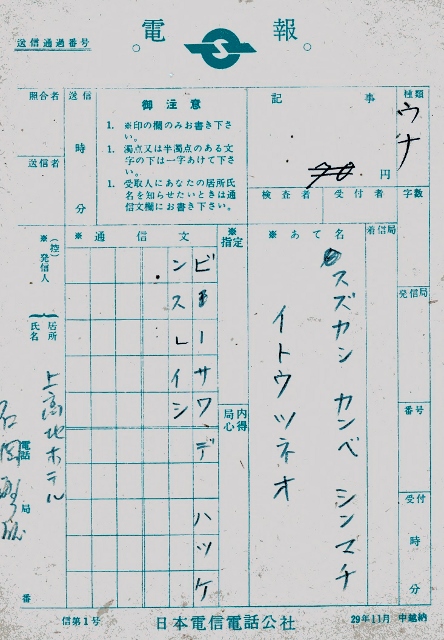 電報
送信通過番号
照合者
送信者
送信
時
分
御注意
1. ※印の欄のみお書き下さい。
1. 濁点又は半濁点のある文字の下は一字あけて下さい。
1. 受取人にあなたの居所氏名を知らせたいときは通信文欄にお書き下さい。
記事
70 円
検査者
受付者
種類
ウナ
字数
着信局
発信局
番号
受付
時
分
※あて名
スズカシ カンベ シンマチ
イトウツネオ
※指定
局内心得
※通信文
ビョーサワ デ ハツケ
ンスレイシ
※(控)発信人
居所
氏名
上高地ホテル
電話
局
番
信第1号
日本電信電話公社
29年11月 中越納